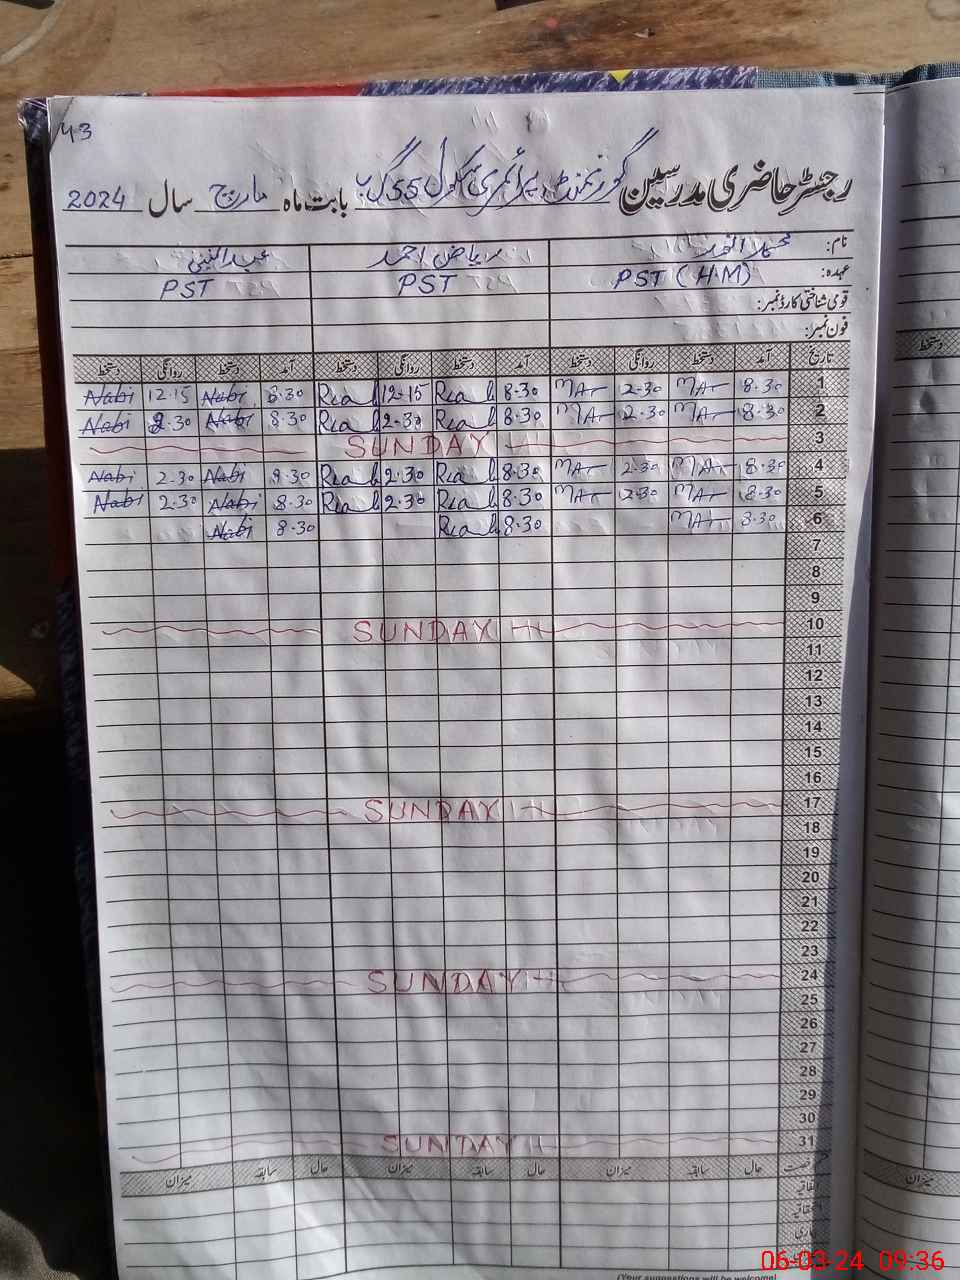 43
رجسٹر حاضری مدرسین گورنمنٹ پرائمری سکول 55 گ ب بابت ماہ مارچ سال 2024
نام: محمد انور ریاض احمد عبدالنبی
عہدہ: PST (HM) PST PST
قومی شناختی کارڈ نمبر:
فون نمبر:
تاریخ آمد دستخط روانگی دستخط آمد دستخط روانگی دستخط آمد دستخط روانگی دستخط
1 8.30 MAr 2.30 MAr 8.30 Riaz 12.15 Riaz 8.30 Nabi 12.15 Nabi
2 8.30 MAr 2.30 MAr 8.30 Riaz 2.30 Riaz 8.30 Nabi 2.30 Nabi
3 SUNDAY
4 8.30 MAr 2.30 MAr 8.30 Riaz 2.30 Riaz 8.30 Nabi 2.30 Nabi
5 8.30 MAr 2.30 MAr 8.30 Riaz 2.30 Riaz 8.30 Nabi 2.30 Nabi
6 8.30 MAr 8.30 Riaz 8.30 Nabi
7
8
9
10 SUNDAY
11
12
13
14
15
16
17 SUNDAY
18
19
20
21
22
23
24 SUNDAY
25
26
27
28
29
30
31 SUNDAY
حال سابقہ میزان حال سابقہ میزان حال سابقہ میزان
دستخط
میزان
(Your suggestions will be welcome)
06-03-24 09:36